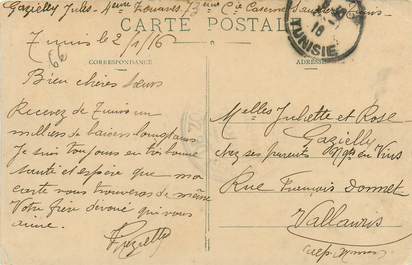 Gazielly Jules 4eme Zouaves 13eme Cie Caserne Tunis
CARTE POSTALE
Tunis le 2/1/16
CORRESPONDANCE
ADRESSE
TUNISIE
16
Bien chères sœurs
Recevez de Tunis un
milliers de baisers
Je suis toujours en très bonne
santé et espère que ma
carte vous trouveras de même
Votre frère dévoué qui vous
aime.
Gazielly
Melles Juliette et Rose
Gazielly
chez ses parents Ngts en Vins
Rue François Donnet
Vallauris